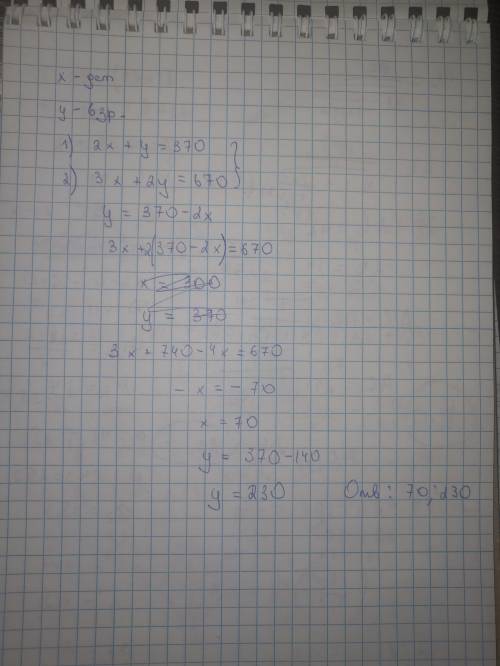 x - дет
y - взр.
1) 2x + y = 370
2) 3x + 2y = 670
y = 370 - 2x
3x + 2(370 - 2x) = 670
x = 300
y = 370
3x + 740 - 4x = 670
- x = - 70
x = 70
y = 370 - 140
y = 230
Отв: 70; 230